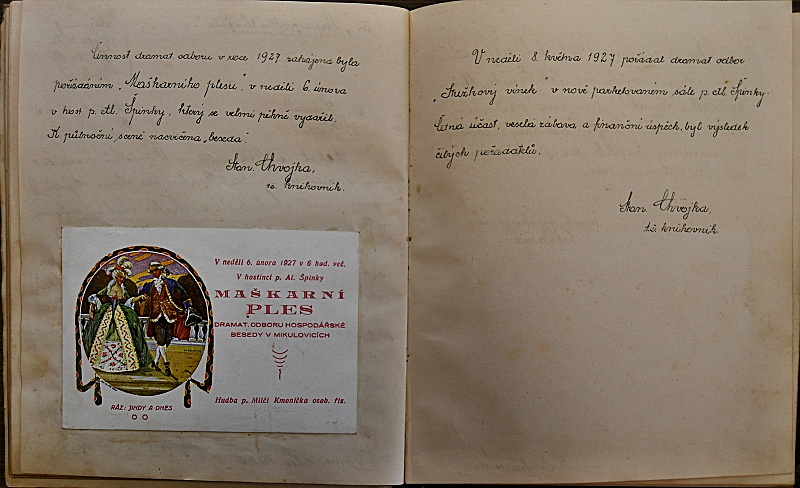 Činnost dramat. odboru v roce 1927 zahájena byla
pořádáním „Maškarního plesu“, v neděli 6. února
v host. p. Al. Špinky, který se velmi pěkně vydařil.
K půlnoční scéně nacvičena „beseda“.
Stan. Chvojka,
t.č. knihovník.
V neděli 6. února 1927 v 6 hod. več.
V hostinci p. Al. Špinky
MAŠKARNÍ
PLES
DRAMAT. ODBORU HOSPODÁŘSKÉ
BESEDY V MIKULOVICÍCH
Hudba p. Milči Kmoníčka osob. říz.
RÁZ: JINDY A DNES
V neděli 8. května 1927 pořádal dramat. odbor
„Stužkový vínek“ v nově parketovaném sále p. Al. Špinky.
Četná účast, veselá zábava a finanční úspěch, byl výsledek
čilých pořadatelů.
Stan. Chvojka,
t.č. knihovník.